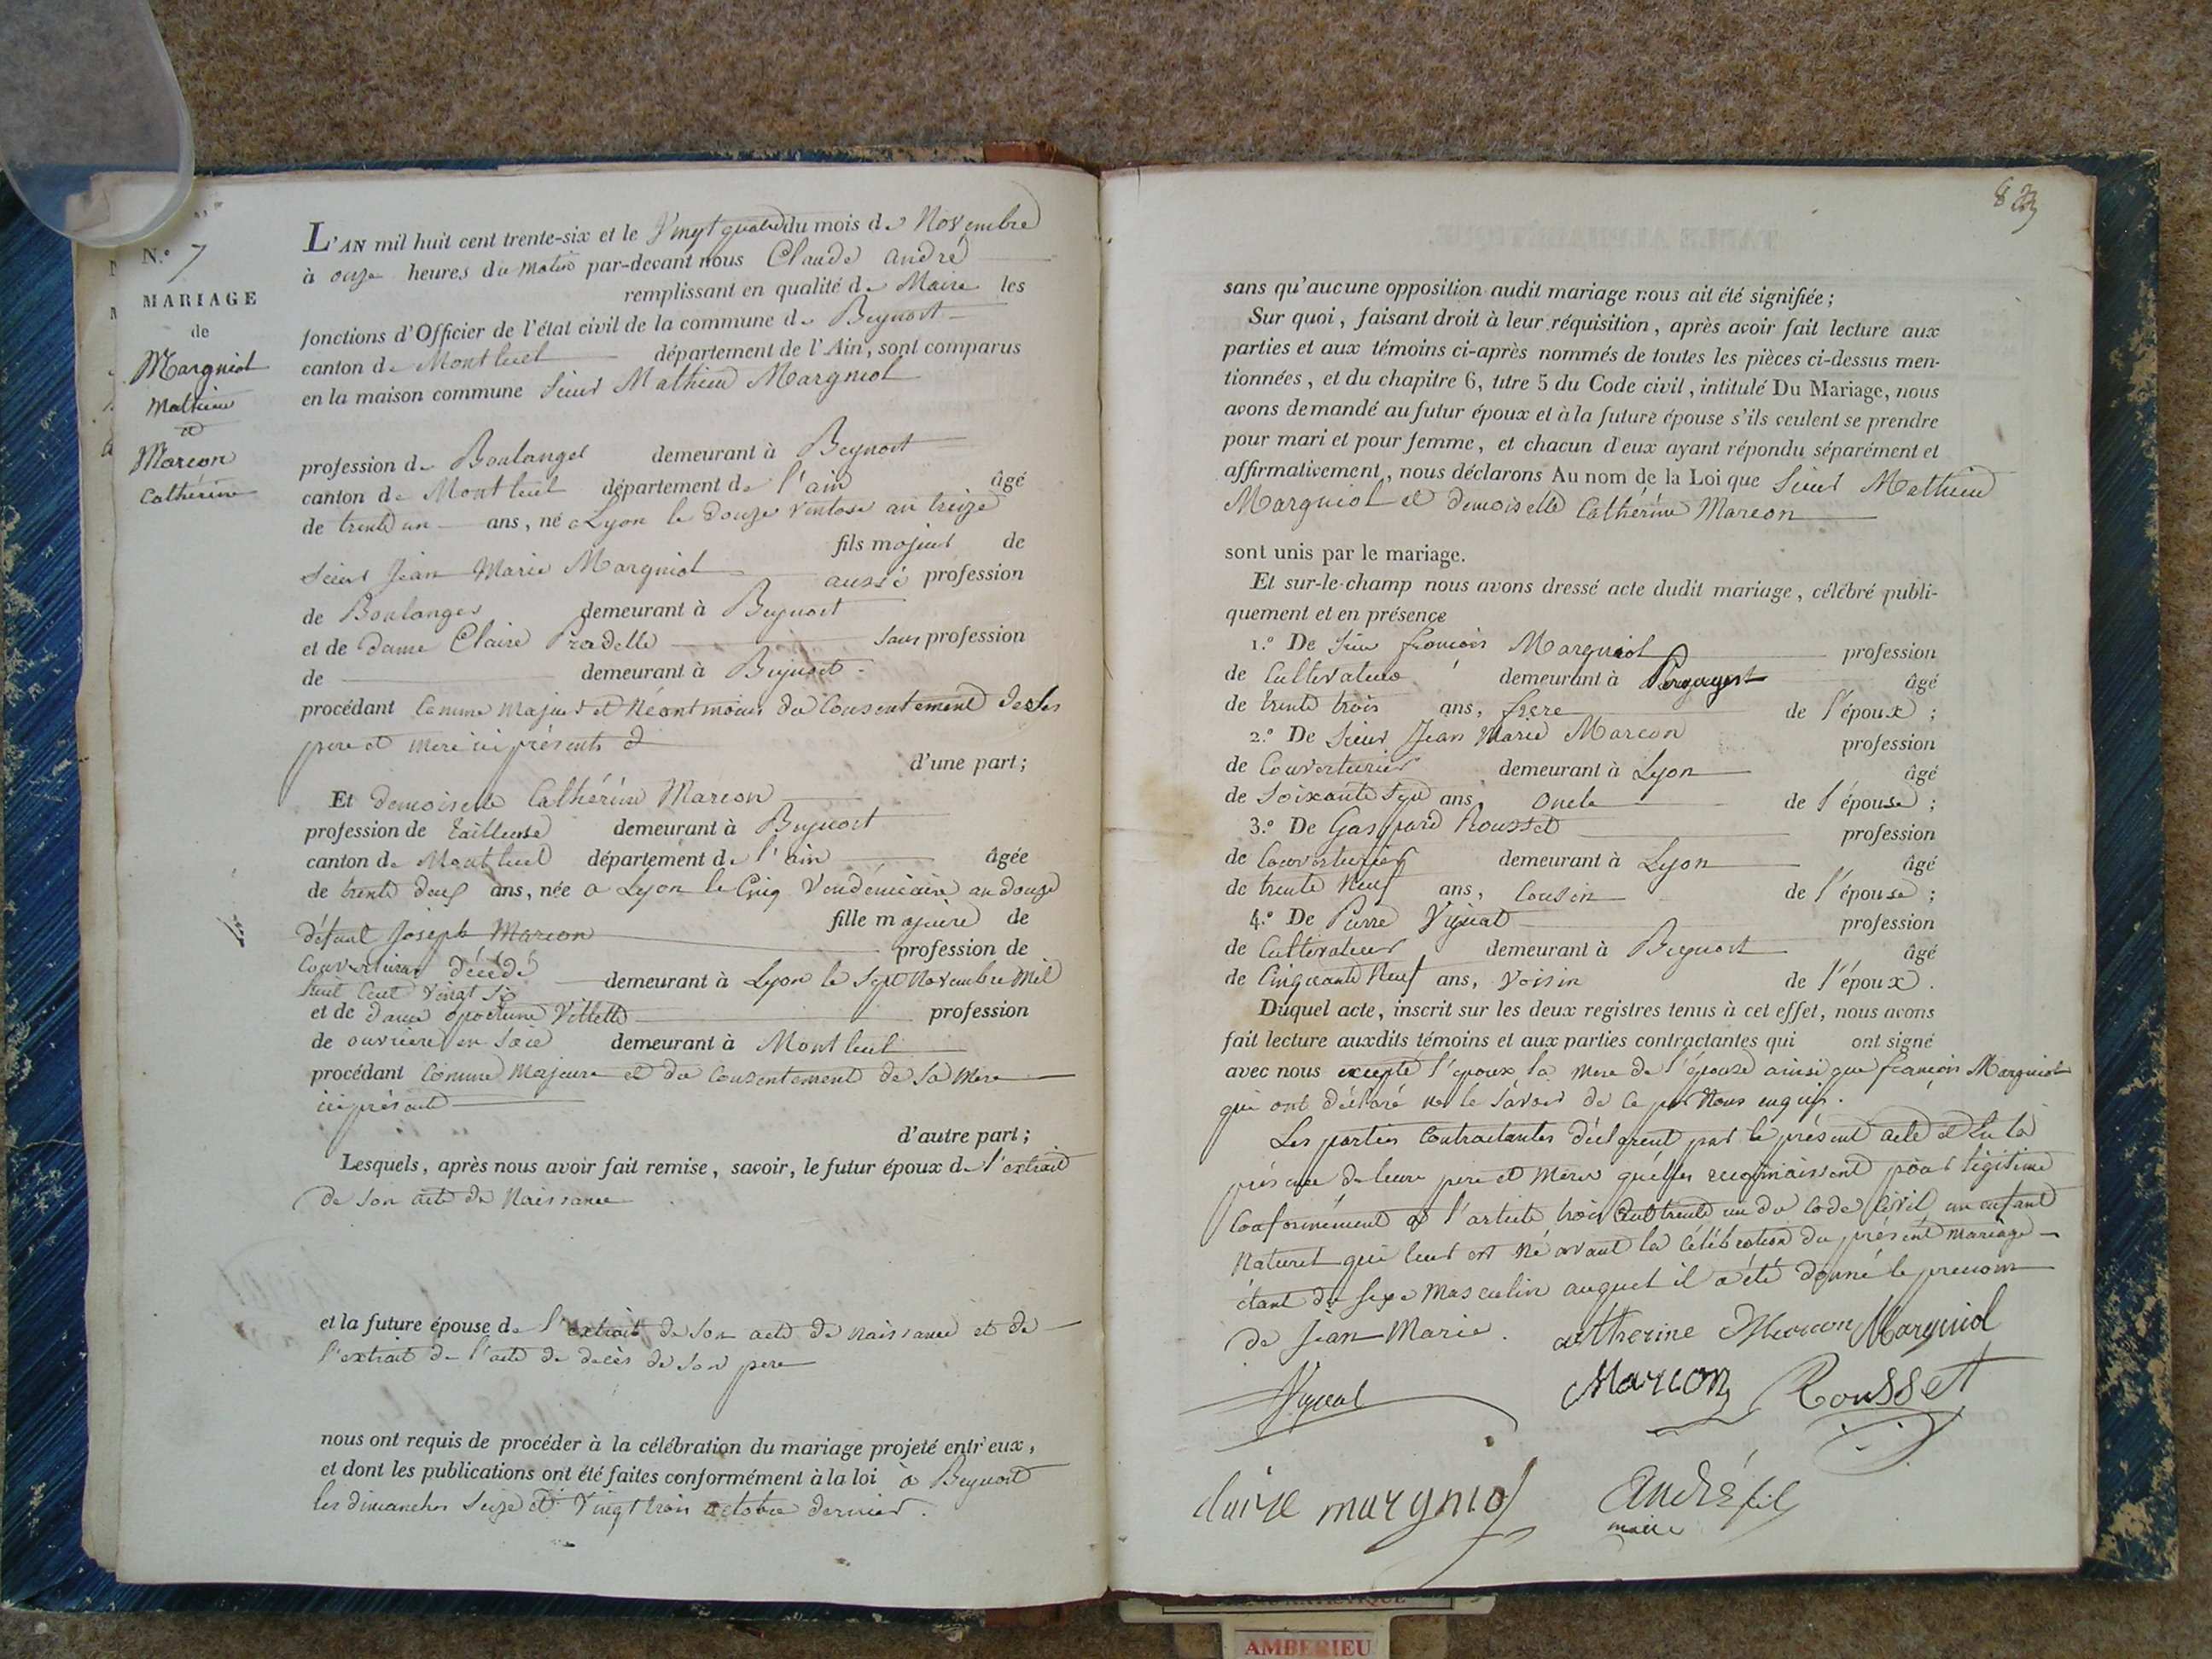 N.º 7
MARIAGE
de
Margniol
Mathieu
et
Marcon
Cathérine
L'AN mil huit cent trente-six et le Vingt quatre du mois de Novembre
à onze heures du matin par-devant nous Claude andré
remplissant en qualité de Maire les
fonctions d'Officier de l'état civil de la commune de Beynost
canton de Montluel département de l'Ain, sont comparus
en la maison commune Sieur Mathieu Margniol
profession de Boulanger demeurant à Beynost
canton de Montluel département de l'ain âgé
de trente un ans, né a Lyon le douze Ventose an treize
fils majeur de
Sieur Jean Marie Margniol aussi profession
de Boulanger demeurant à Beynost
et de Dame Claire Pradelle Sans profession
de demeurant à Beynost
procédant Comme Majeur et Néantmoins du Consentement de ses
pere et mere ici présents
d'une part;
Et demoiselle Cathérine Marcon
profession de tailleuse demeurant à Beynost
canton de Montluel département de l'ain âgée
de trente deux ans, née a Lyon le Cinq Vendémiaire an douze
fille majeure de
défunt Joseph Marcon profession de
Couverturier décédé demeurant à Lyon le Sept Novembre Mil
huit Cent Vingt Six
et de dame Villette profession
de ouvriere en Soie demeurant à Montluel
procédant Comme Majeure et du Consentement de Sa Mere
ici présente
d'autre part;
Lesquels, après nous avoir fait remise, savoir, le futur époux de l'extrait
de Son acte de Naissance
et la future épouse de l'extrait de Son acte de naissance et de
l'extrait de l'acte de decès de Son pere
nous ont requis de procéder à la célébration du mariage projeté entr'eux,
et dont les publications ont été faites conformément à la loi à Beynost
les dimanches Seize et Vingt trois octobre dernier.
sans qu'aucune opposition audit mariage nous ait été signifiée;
Sur quoi, faisant droit à leur réquisition, après avoir fait lecture aux
parties et aux témoins ci-après nommés de toutes les pièces ci-dessus men-
tionnées, et du chapitre 6, titre 5 du Code civil, intitulé Du Mariage, nous
avons demandé au futur époux et à la future épouse s'ils veulent se prendre
pour mari et pour femme, et chacun d'eux ayant répondu séparément et
affirmativement, nous déclarons Au nom de la Loi que Sieur Mathieu
Margniol et demoiselle Cathérine Marcon
sont unis par le mariage.
Et sur-le-champ nous avons dressé acte dudit mariage, célébré publi-
quement et en présence
1.º De Sieur françois Margniol profession
de Cultivateur demeurant à âgé
de trente trois ans, frere de l'époux;
2.º De Sieur Jean Marie Marcon profession
de Couverturier demeurant à Lyon âgé
de Soixante Sept ans, Oncle de l'épouse;
3.º De Gaspard Rousset profession
de Couverturier demeurant à Lyon âgé
de trente Neuf ans, Cousin de l'épouse;
4.º De Pierre Vignat profession
de Cultivateur demeurant à Beynost âgé
de Cinquante Neuf ans, Voisin de l'époux.
Duquel acte, inscrit sur les deux registres tenus à cet effet, nous avons
fait lecture auxdits témoins et aux parties contractantes qui ont signé
avec nous excepté l'époux la Mere de l'épouse ainsi que françois Margniol
qui ont déclaré ne le Savoir de ce par Nous enquis.
Les parties Contractantes déclarent par le présent acte et En la
présence de leurs pere et Mere qu'elles reconnaissent pour légitime
Conformément à l'article trois Cent trente un du Code Civil un enfant
Naturel qui leur est né avant la Célébration du présent mariage
étant du Sexe Masculin auquel il a été donné le prenom
de Jean Marie. Catherine Marcon Margniol
Vignat Marcon Rousset
claire margniol André fils
maire
AMBERIEU